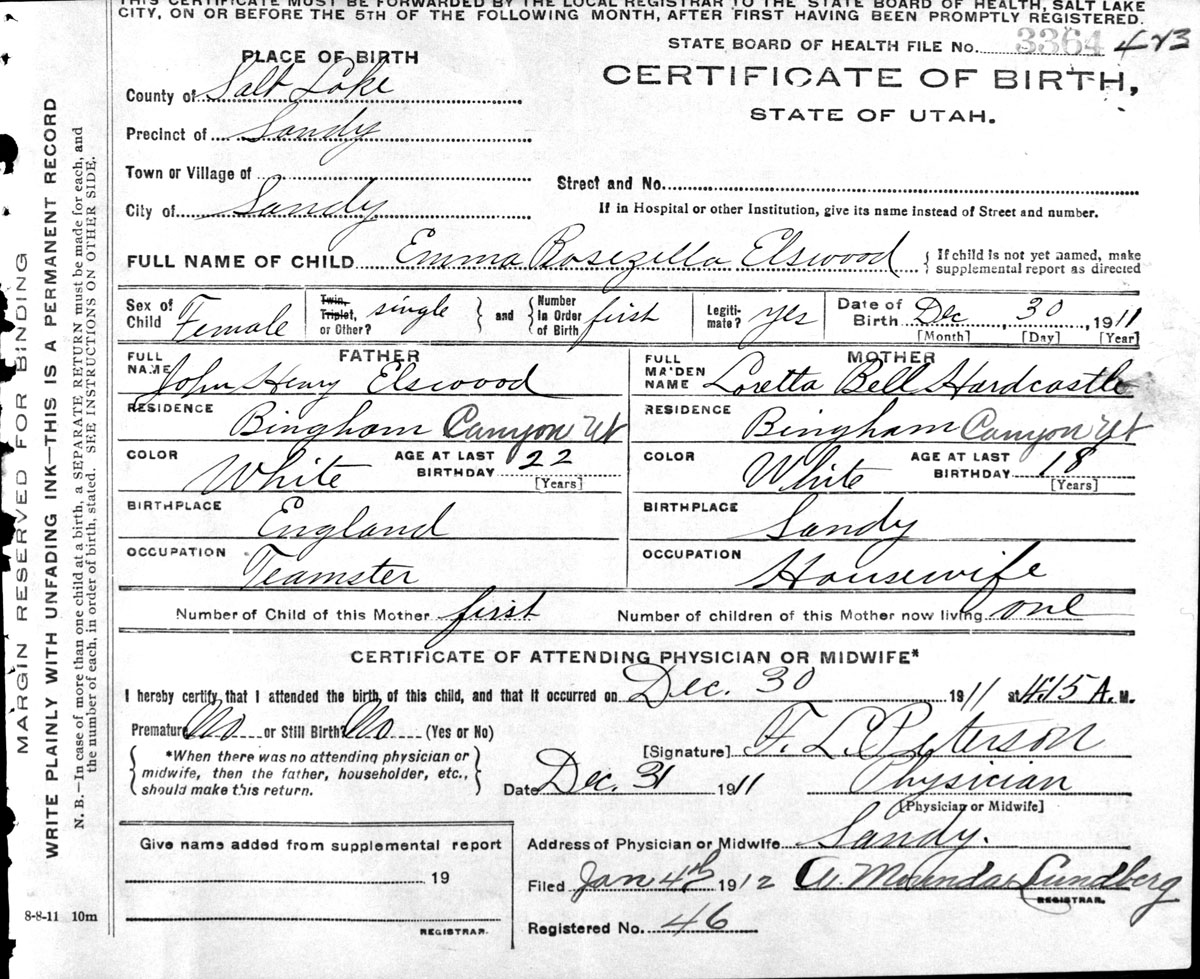 THIS CERTIFICATE MUST BE FORWARDED BY THE LOCAL REGISTRAR TO THE STATE BOARD OF HEALTH, SALT LAKE
CITY, ON OR BEFORE THE 5TH OF THE FOLLOWING MONTH, AFTER FIRST HAVING BEEN PROMPTLY REGISTERED.
STATE BOARD OF HEALTH FILE No. 3364 423
PLACE OF BIRTH
CERTIFICATE OF BIRTH,
STATE OF UTAH.
County of Salt Lake
Precinct of Sandy
Town or Village of
Street and No.
City of Sandy
If in Hospital or other Institution, give its name instead of Street and number.
FULL NAME OF CHILD Emma Rosezella Elswood { If child is not yet named, make
supplemental report as directed
Sex of Child Female
Twin, Triplet, or Other? single
and Number In Order of Birth first
Legitimate? yes
Date of Birth Dec, 30, 1911
[Month] [Day] [Year]
FATHER
FULL NAME John Henry Elswood
RESIDENCE Bingham Canyon Ut
COLOR White AGE AT LAST BIRTHDAY 22
[Years]
BIRTHPLACE England
OCCUPATION Teamster
MOTHER
FULL MAIDEN NAME Loretta Bell Hardcastle
RESIDENCE Bingham Canyon Ut
COLOR White AGE AT LAST BIRTHDAY 18
[Years]
BIRTHPLACE Sandy
OCCUPATION Housewife
Number of Child of this Mother first Number of children of this Mother now living one
CERTIFICATE OF ATTENDING PHYSICIAN OR MIDWIFE*
I hereby certify that I attended the birth of this child, and that it occurred on Dec. 30 1911 at 4.15 A. M.
Premature No or Still Birth? No (Yes or No)
*When there was no attending physician or
midwife, then the father, householder, etc.,
should make this return.
[Signature] F. L. Peterson
Date Dec. 31 1911 Physician
[Physician or Midwife]
Address of Physician or Midwife Sandy.
Filed Jan 4th 1912 Lundberg
REGISTRAR.
Registered No. 46
Give name added from supplemental report
19
REGISTRAR.
8-8-11 10m
MARGIN RESERVED FOR BINDING
WRITE PLAINLY WITH UNFADING INK—THIS IS A PERMANENT RECORD
N. B.—In case of more than one child at a birth, a SEPARATE RETURN must be made for each, and
the number of each, in order of birth, stated. SEE INSTRUCTIONS ON OTHER SIDE.